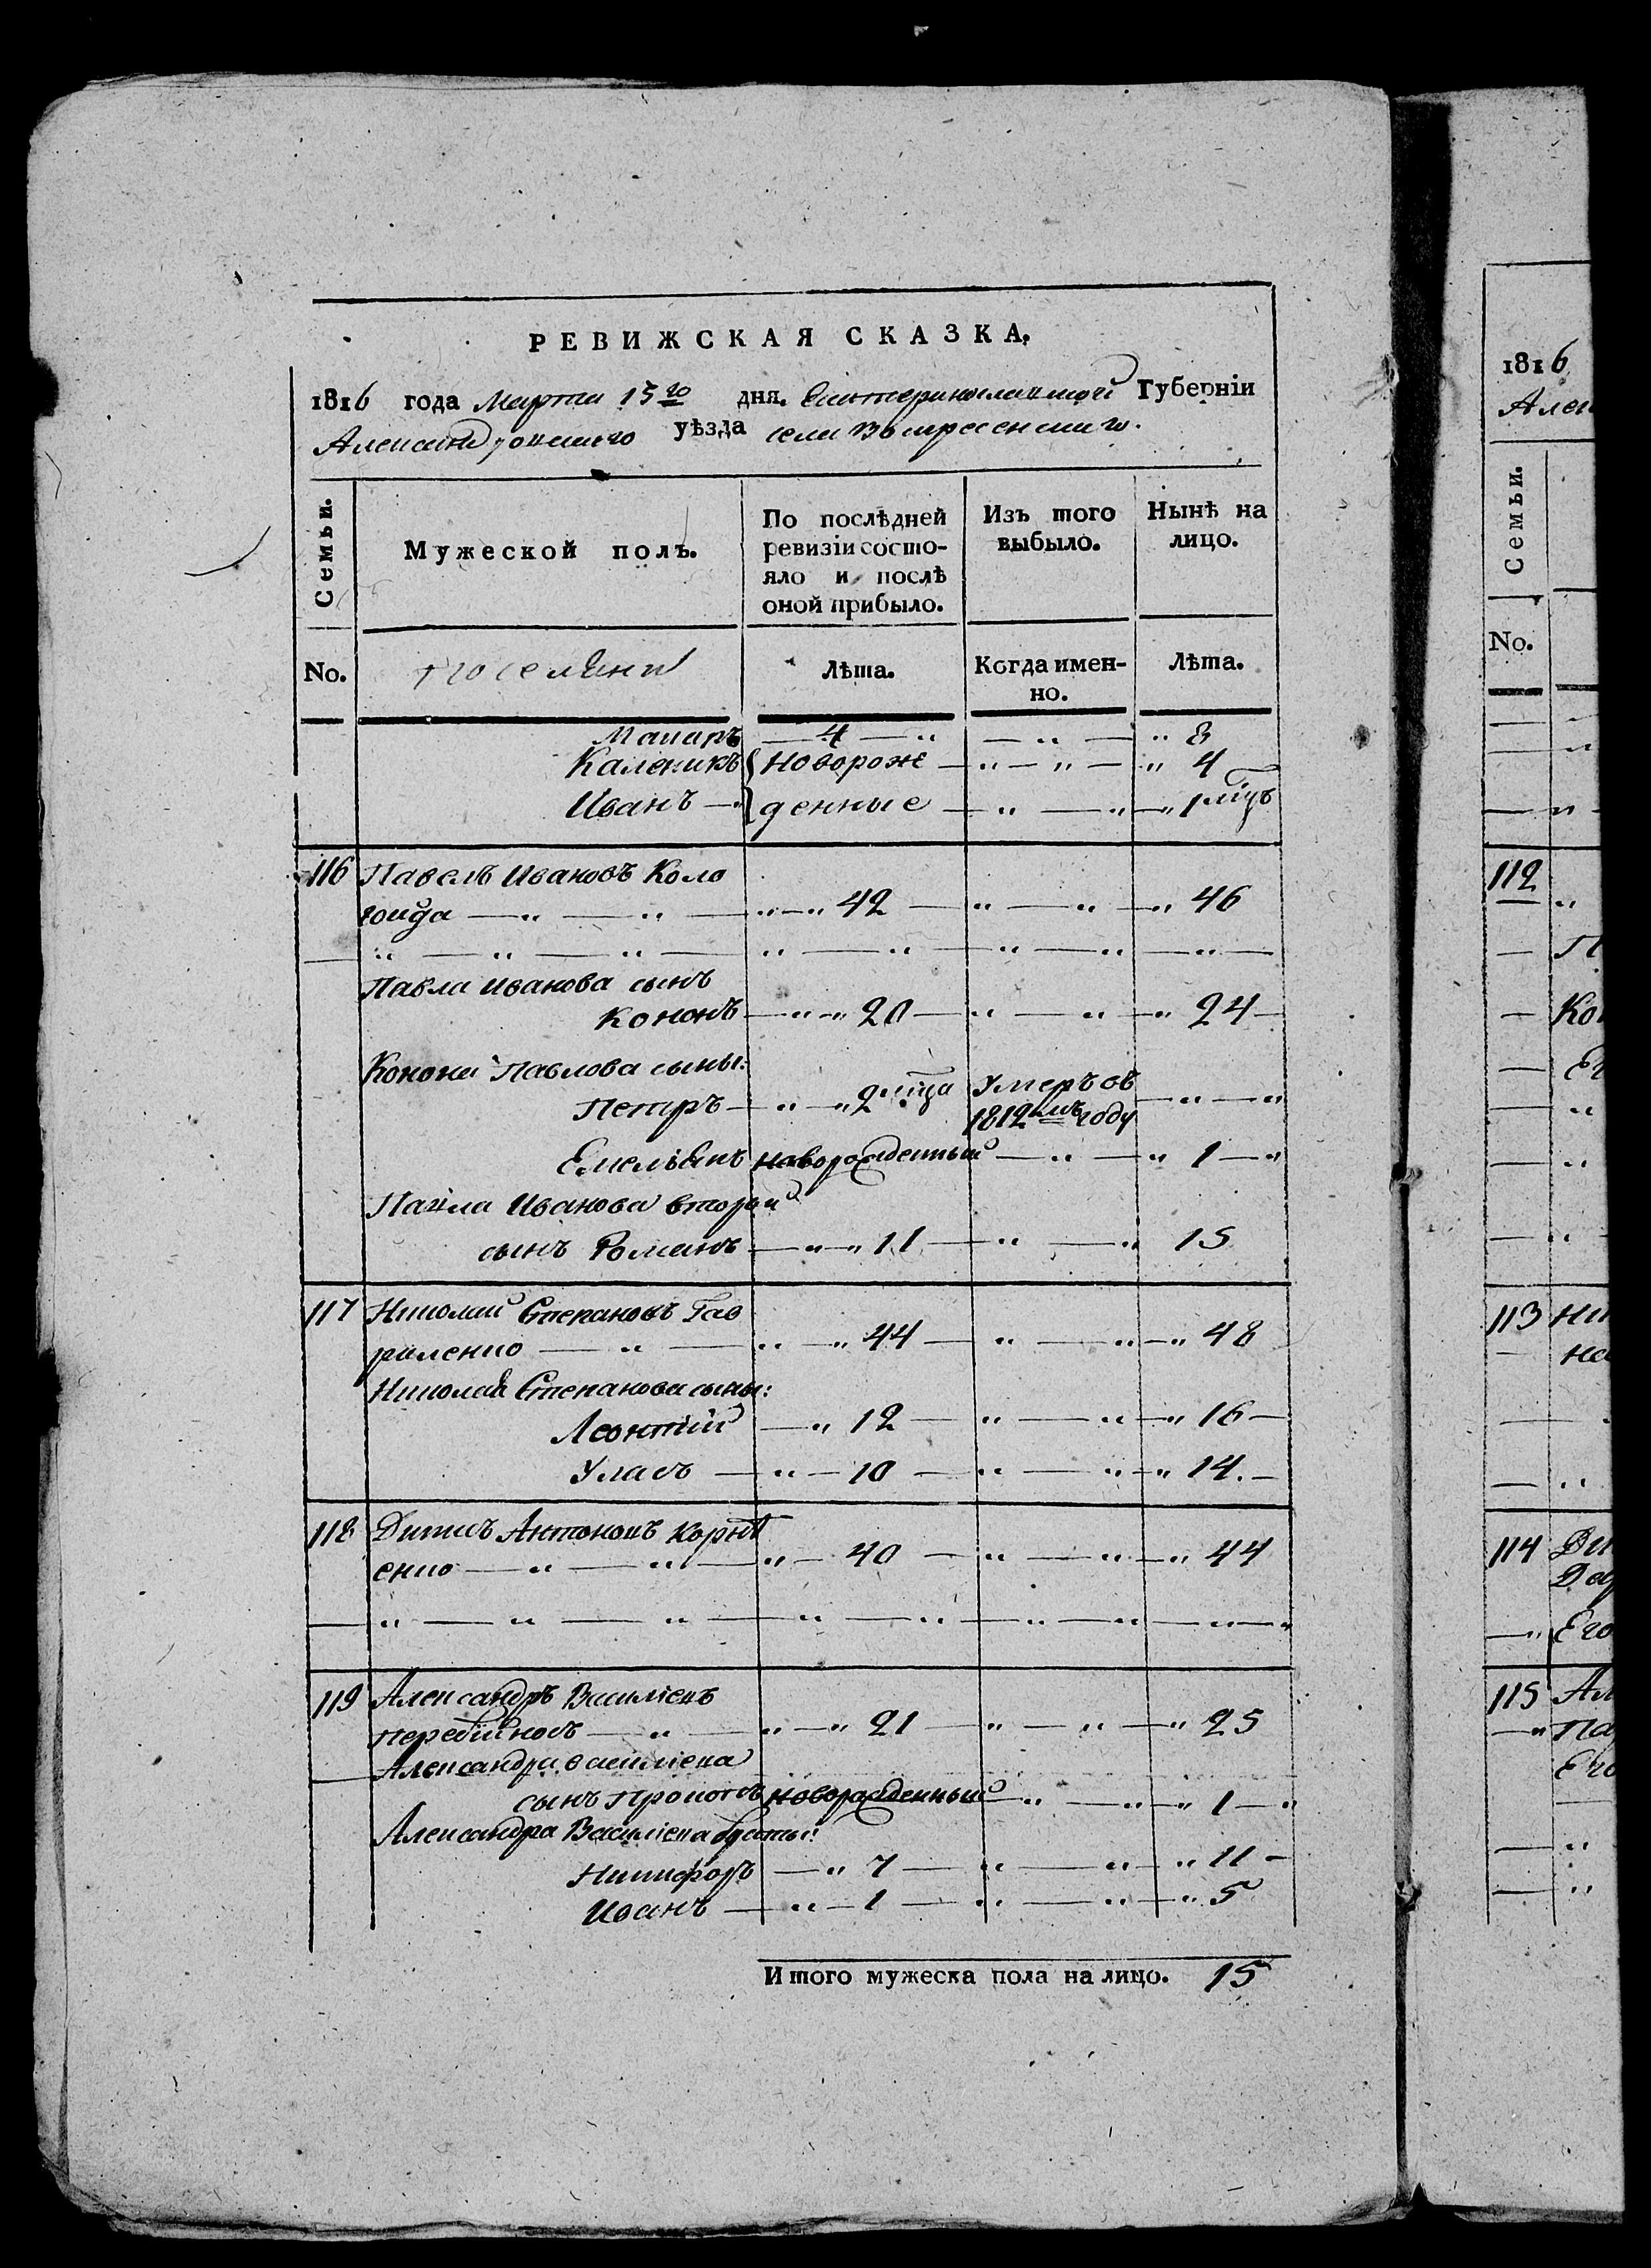 РЕВИЖСКАЯ СКАЗКА.
1816 года Марта 15го дня. Екатеринославской Губерніи
Александровскаго уѣзда села Воскресенскаго.
Семьи. Мужеской полъ. По послѣдней ревизіи состояло и послѣ оной прибыло. Изъ того выбыло. Нынѣ на лицо.
No. поселяни Лѣта. Когда именно. Лѣта.
Макаръ — 4 — " — " — " 8
Каленикъ { Новорож — " — " — " 4
Иванъ — " { денные — " — " — " 1 мцъ
116 Павелъ Ивановъ Коло
гойда — " — " — " — " 42 — " — " — " 46
" — " — " — " — " — " — " — " —
Павла Иванова сынъ
Кононъ — " — " 20 — " — " — " 24 —
Конона Павлова сыны:
Петръ — " — " 2 мца Умеръ въ 1812мъ году — " — "
Емельянъ новорожденный — " — " 1 — "
Павла Иванова вторый
сынъ Романъ — " — " 11 — " — " 15
117 Николай Степановъ Гав
риленко — " — " — " 44 — " — " — " 48
Николая Степанова сыны:
Леонтій — " 12 — " — " — " 16 —
Уласъ — " — 10 — " — " — " 14. —
118 Антоновъ Корнѣ
енко — " — " — " — 40 — " — " — " 44
— " — " — " — " — " — " — " — " — "
119 Александръ Василіевъ
Перебійносъ — " — " — " 21 — " — " — " 25
Александра Василіева
сынъ Прокопъ новорожденный — " — " — " 1 — "
Александра Василіева браты:
Никифоръ — " 7 — " — " — " 11 —
Иванъ — " — 1 — " — " — " 5
Итого мужеска пола на лицо. 15
1816
Алек
Семьи.
No.
112
П
Ко
113 Ни
114
Его
115 Ал